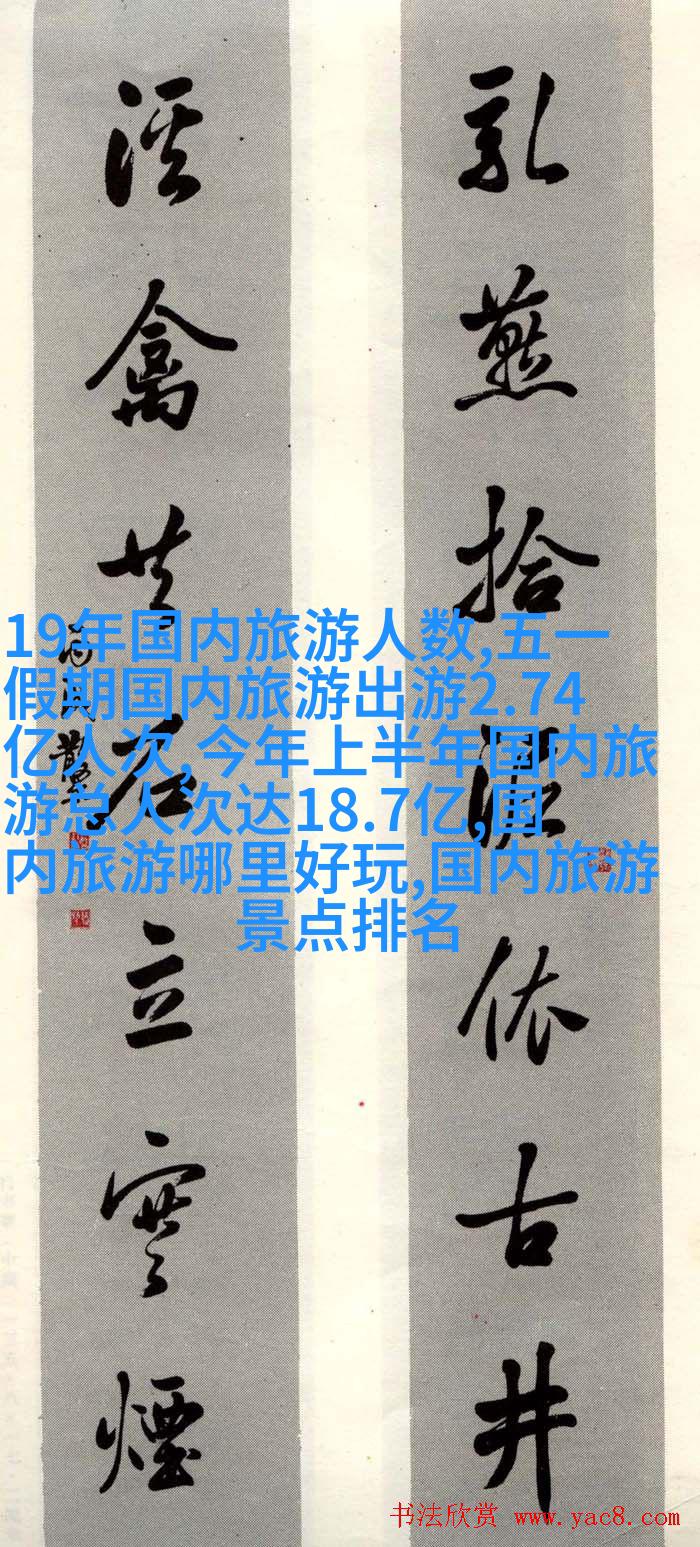 乳燕拾泥依古井
溪禽共石立寒煙
19年国内旅游人数,五一
假期国内旅游出游2.74
亿人次,今年上半年国内旅
游总人次达18.7亿,国
内旅游哪里好玩,国内旅游
景点排名
书法欣赏 www.yac8.com